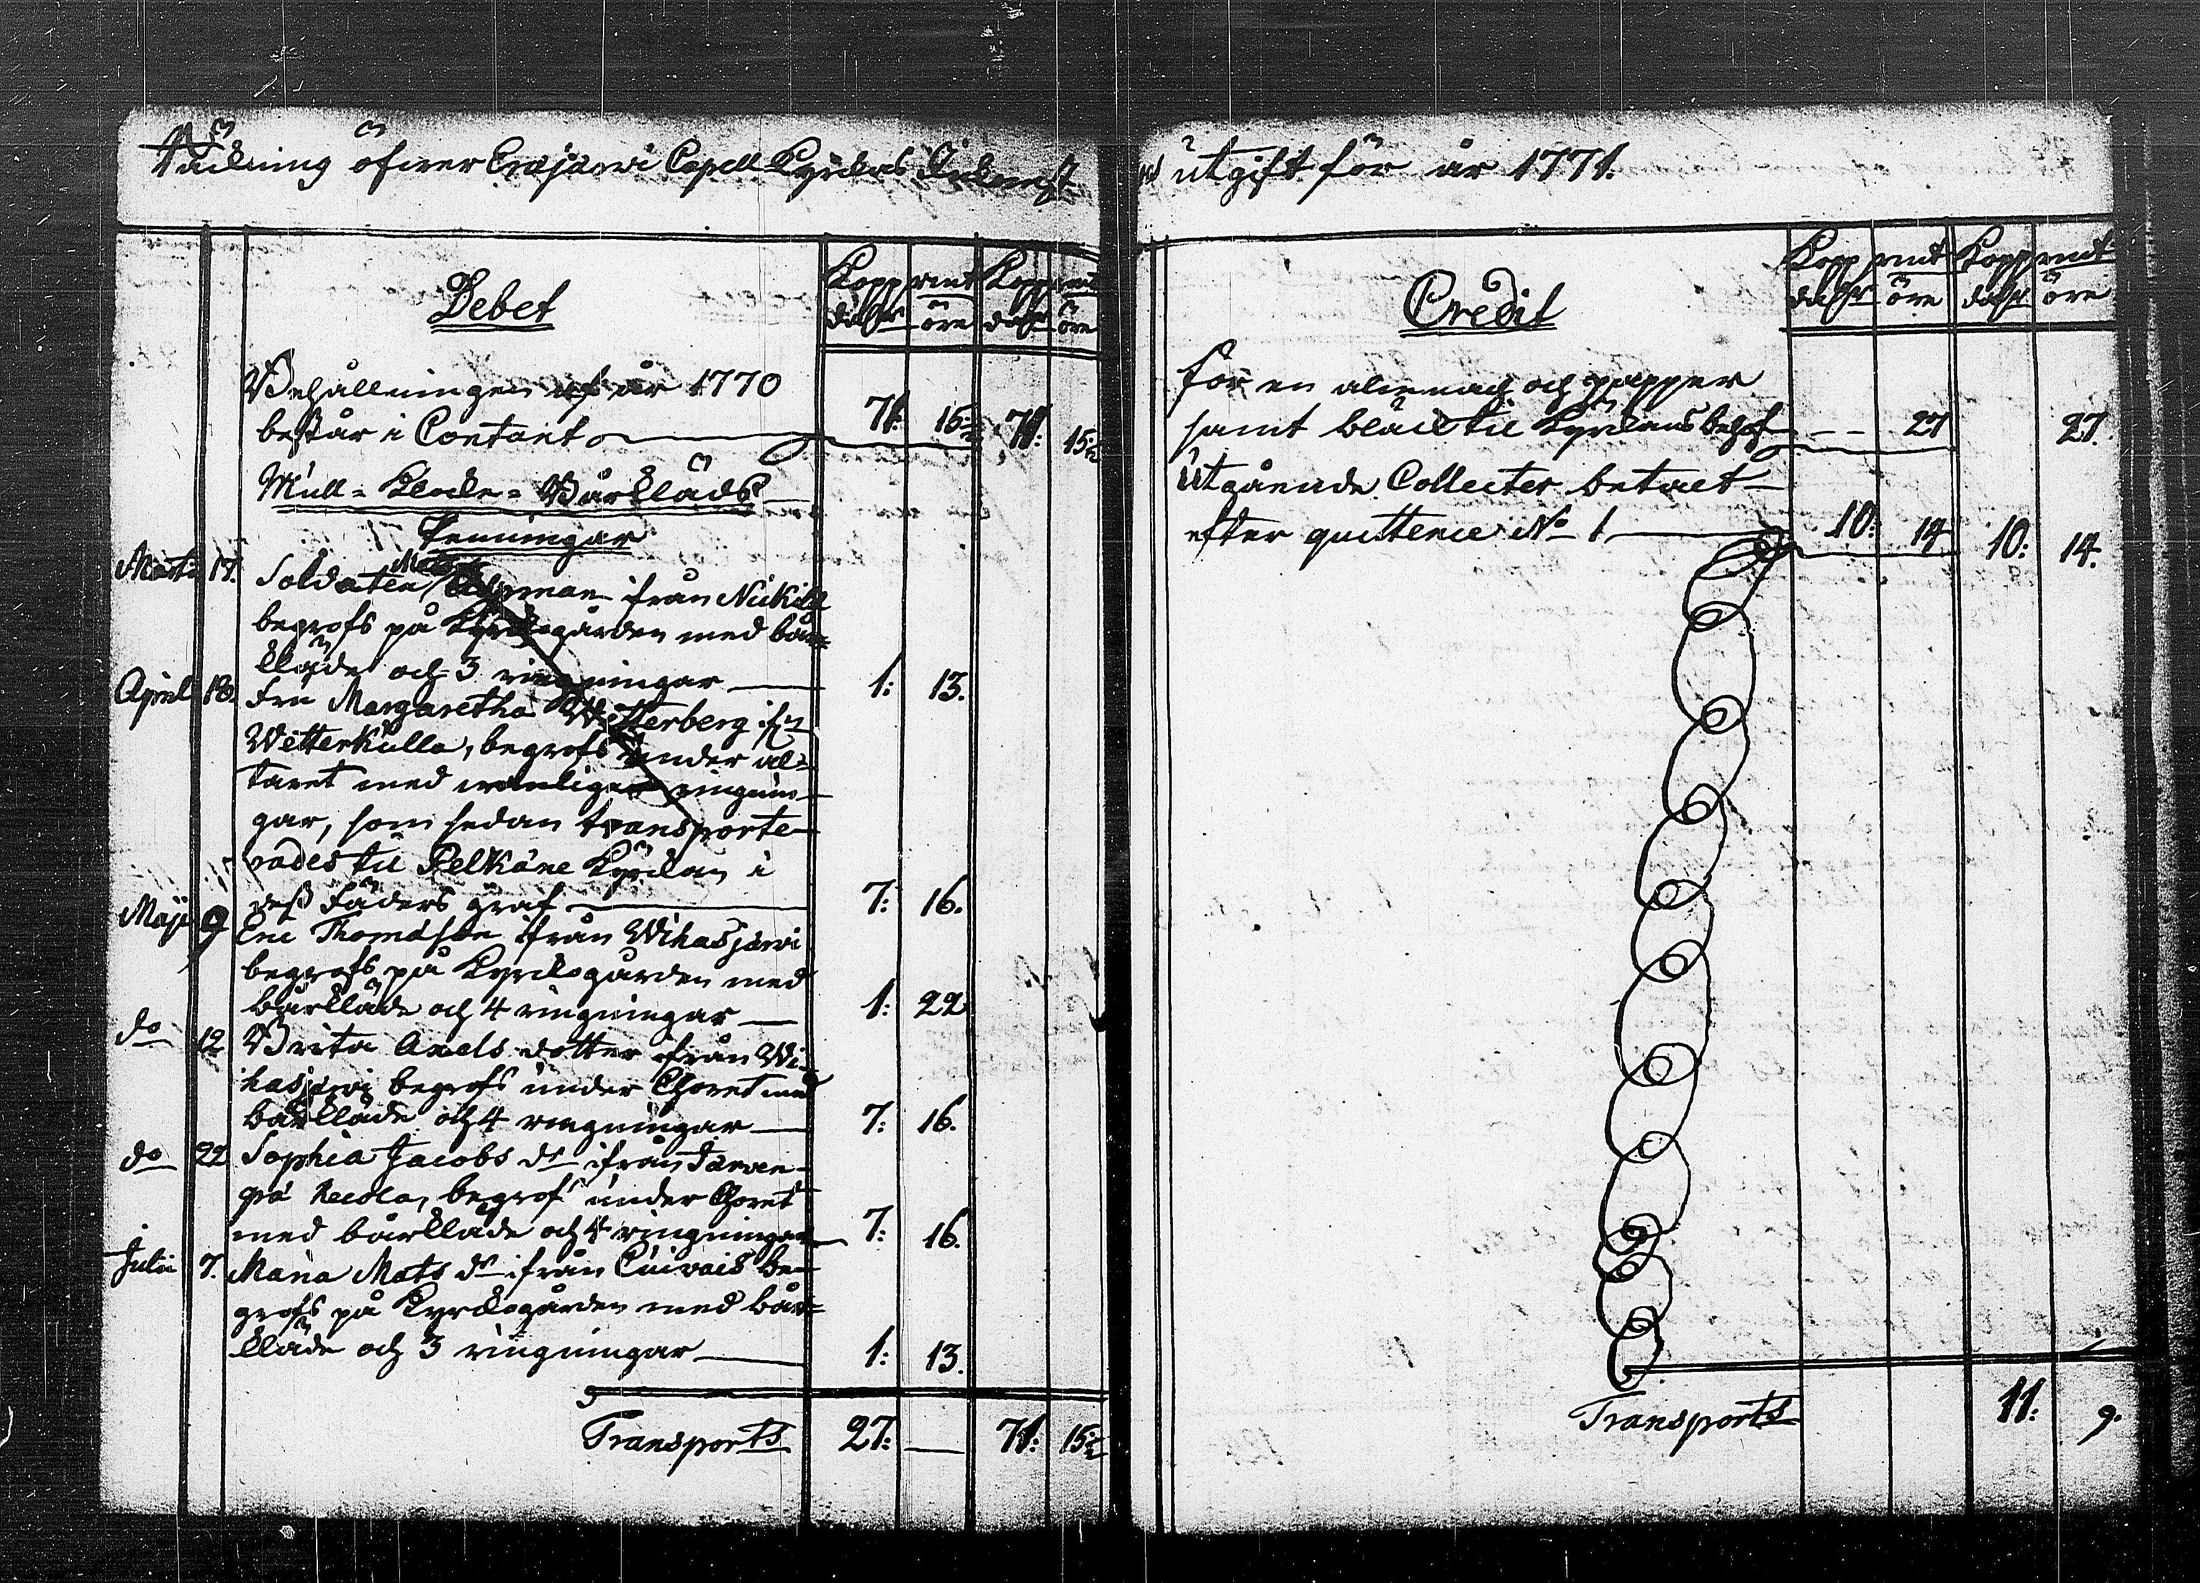 Räckning öfwer Eräjärwi Capell Kyrckas Inkomst
och utgift för år 1771.
Debet
Kopp mt Kopp mt
dalr öre dalr öre
Behållningen af år 1770
består i Contant 71: 15½ 71: 15½
Mull- Klocke- Bårkläds
Penningar
Martii 17. Soldaten ifrån Nickilä
begrofs på Kyrckogården med bår=
kläde och 3 ringningar 1: 13.
April 18. Fru Margaretha Witterberg ifrån
Wetterkulla, begrofs under al=
taret med wanliga ringnin-
gar, som sedan transporte-
rades til Pelkäne Kyrckan i
dess Fäders graf 7: 16.
Maji 9 Eric Thomasson ifrån Wihasjärwi
begrofs på Kyrckogården med
bårkläde och 4 ringningar 1: 22
do 12 Brita Axels dotter ifrån Wi-
hasjärwi begrofs under Choret med
bårkläde och 4 ringningar 7: 16.
do 22 Sophia Jacobs dr ifrån Järwen-
pä begrofs under Choret
med bårkläde och 4 ringningar 7: 16.
Julii 7. Maria Mats dr ifrån be-
grofs på Kyrckogården med bår=
kläde och 3 ringningar 1: 13.
Transports 27: — 71: 15½
Credit
Kopp mt Kopp mt
dalr öre dalr öre
För en almenach och papper
samt bläck til Kyrckans behof — — 27 27.
Utgående Collecter betalt
efter quittence No 1 10: 14 10: 14.
Transports 11: 9.